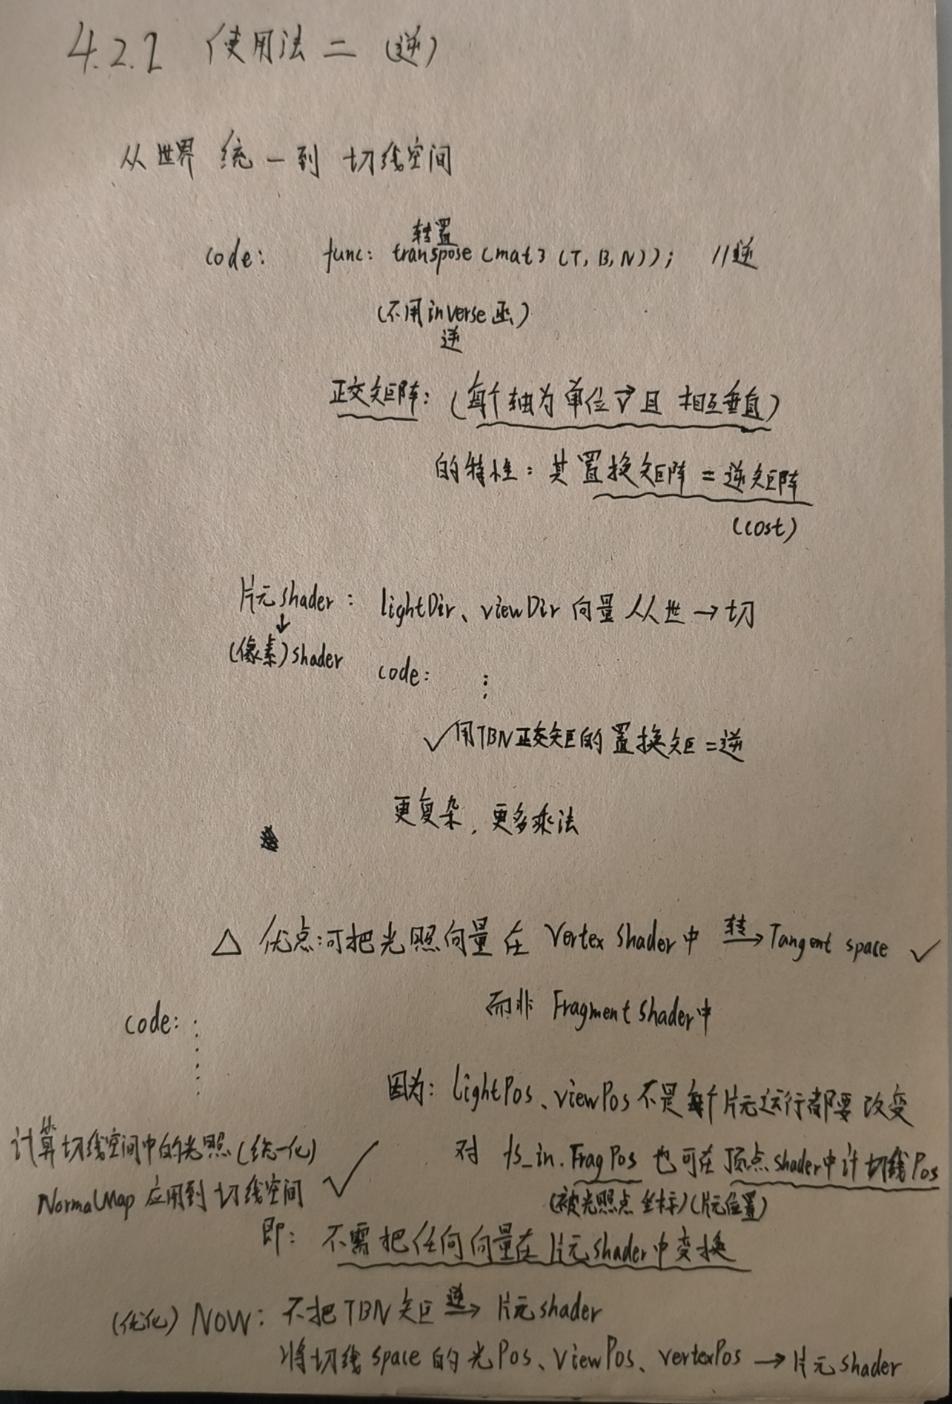 4.2.2 使用法二 (逆)
从世界 统一到 切线空间
转置
code: func: transpose (mat3 (T, B, N)); //逆
(不用inverse函)
逆
正交矩阵: (每个轴为单位v且 相互垂直)
的特性: 其置换矩阵 = 逆矩阵
(cost)
片元shader: lightDir、viewDir 向量从世→切
↓
(像素)shader
code: ⋮
✓用TBN正交矩的置换矩=逆
更复杂, 更多乘法
△ 优点:可把光照向量在 Vertex shader中 转→ Tangent space ✓
而非 Fragment shader中
code:
因为: lightPos、viewPos 不是每个片元运行都要改变
计算切线空间中的光照(统一化)
对 fs_in.FragPos 也可在顶点shader中计切线Pos
NormalMap 应用到切线空间 ✓
(被光照点坐标)(片元位置)
即: 不需把任何向量在片元shader中变换
(优化) NOW: 不把TBN矩 逆→ 片元shader
将切线space的光Pos、viewPos、vertexPos → 片元shader